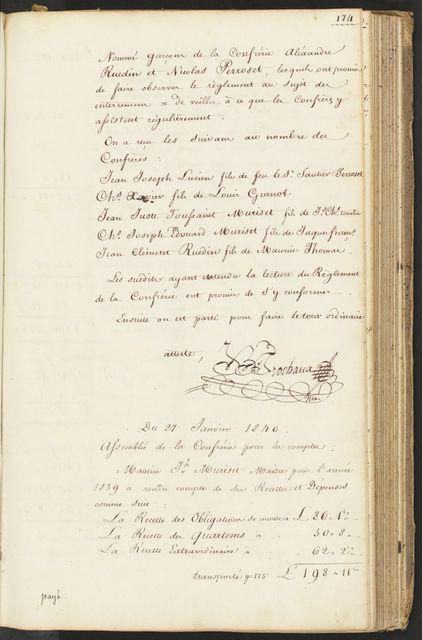 174
Nommé garçons de la Confrérie Alexandre
Ruedin et Nicolas Perroset, lesquels ont promis
de faire observer le règlement au sujet des
enterremens & de veiller à ce que les Confrères y
assistent régulièrement.
On a reçu les suivans au nombre des
Confrères:
Jean Joseph Lucien fils de feu le Sr. Sautier Perroset
Chs. Xavier fils de Louis Guenot
Jean Juste Toussaint Muriset fils de Jn. Chs.
Chs. Joseph Edouard Muriset fils de Jaque franç.
Jean Clément Ruedin fils de Maurice Thomas.
Les susdits ayant entendu la lecture du Règlement
de la Confrérie ont promis de s'y conformer.
Ensuite on est parti pour faire le tour ordinaire
atteste,
Frochaux
Du 27 Janvier 1840.
Assemblée de la Confrérie pour les comptes.
Maurice Jh. Muriset Maitre pour l'année
1839 a rendu compte de ses Recettes et Dépenses
comme suit:
La Recette des Obligations se monte à L 86 "
La Recette des Quartemps " 50 " 8 "
La Recette Extraordinaire " 62 " 2
transporté p. 175 L 198 " 11
payé.